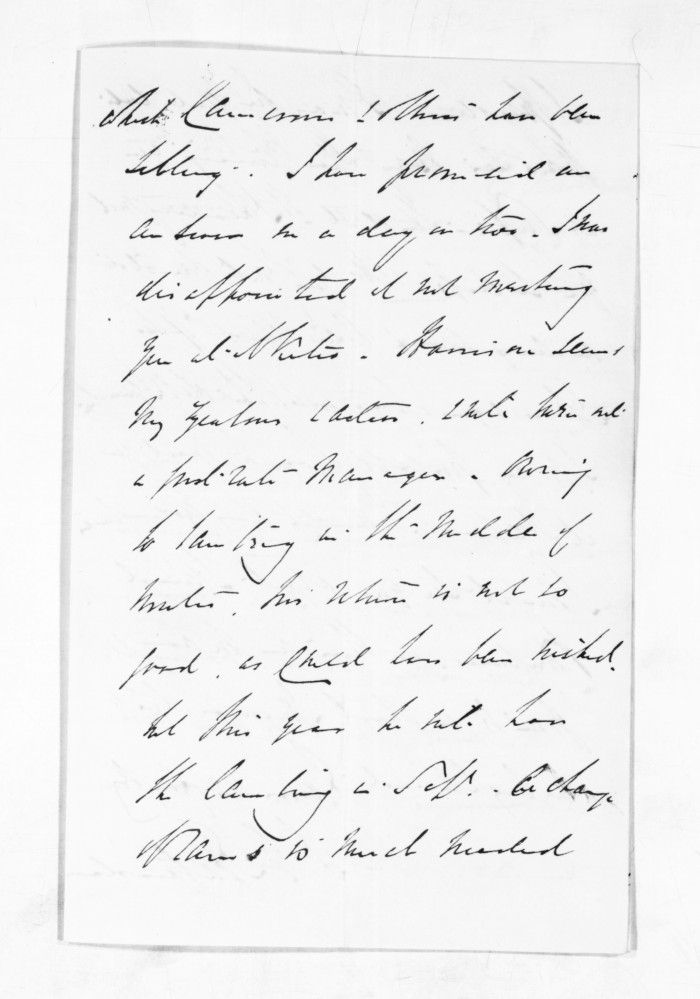 which Cameron & others have been
selling. I have promised an
answer in a day or two. I was
disappointed at not meeting
you at . Harrison seems
very zealous & active. & will turn out
a first rate manager. Owing
to lambing in the middle of
winter, his return is not so
good, as could have been wished,
but this year he will have
the lambing in Sept. - A change
of Rams is much needed